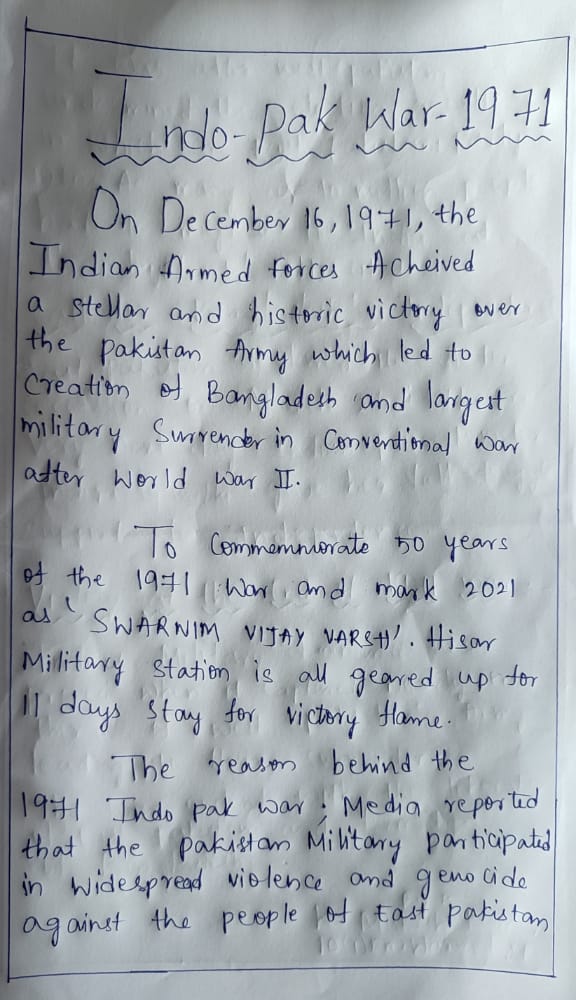 Indo-Pak War-1971
On December 16, 1971, the
Indian Armed Forces Acheived
a stellar and historic victory over
the Pakistan Army which led to
Creation of Bangladesh and largest
military Surrender in Conventional war
after World War II.
To Commemmorate 50 years
of the 1971 War and mark 2021
as 'SWARNIM VIJAY VARSH'. Hisar
Military Station is all geared up for
11 days stay for victory flame.
The reason behind the
1971 Indo pak war; Media reported
that the Pakistan Military participated
in widespread violence and genocide
against the people of East Pakistan